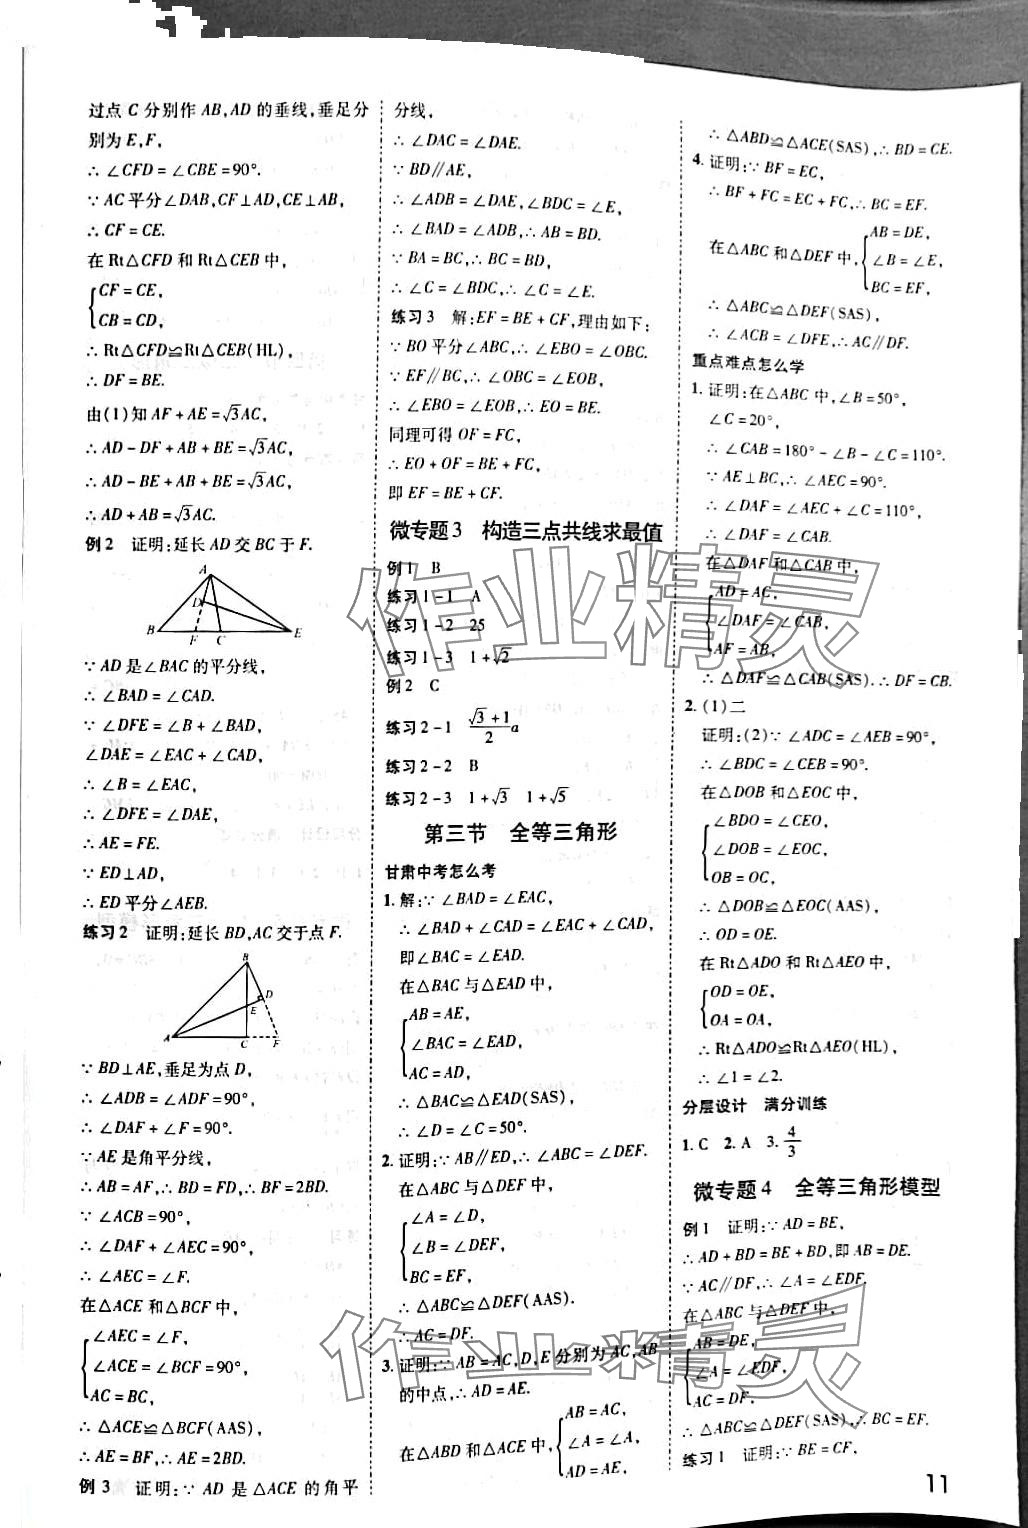 过点 C 分别作 AB,AD 的垂线,垂足分
别为 E,F,
∴ ∠CFD = ∠CBE = 90°.
∵ AC 平分∠DAB,CF⊥AD,CE⊥AB,
∴ CF = CE.
在 Rt△CFD 和 Rt△CEB 中,
CF = CE,
CB = CD,
∴ Rt△CFD≌Rt△CEB(HL),
∴ DF = BE.
由(1)知 AF + AE = √3AC,
∴ AD - DF + AB + BE = √3AC,
∴ AD - BE + AB + BE = √3AC,
∴ AD + AB = √3AC.
例 2 证明:延长 AD 交 BC 于 F.
A
D
B F C E
∵ AD 是∠BAC 的平分线,
∴ ∠BAD = ∠CAD.
∵ ∠DFE = ∠B + ∠BAD,
∠DAE = ∠EAC + ∠CAD,
∴ ∠B = ∠EAC,
∴ ∠DFE = ∠DAE,
∴ AE = FE.
∵ ED⊥AD,
∴ ED 平分∠AEB.
练习 2 证明:延长 BD,AC 交于点 F.
B
D
E
A C F
∵ BD⊥AE,垂足为点 D,
∴ ∠ADB = ∠ADF = 90°,
∴ ∠DAF + ∠F = 90°.
∵ AE 是角平分线,
∴ AB = AF,∴ BD = FD,∴ BF = 2BD.
∵ ∠ACB = 90°,
∴ ∠DAF + ∠AEC = 90°,
∴ ∠AEC = ∠F.
在△ACE 和△BCF 中,
∠AEC = ∠F,
∠ACE = ∠BCF = 90°,
AC = BC,
∴ △ACE≌△BCF(AAS),
∴ AE = BF,∴ AE = 2BD.
例 3 证明:∵ AD 是 △ACE 的角平
分线,
∴ ∠DAC = ∠DAE.
∵ BD∥AE,
∴ ∠ADB = ∠DAE,∠BDC = ∠E,
∴ ∠BAD = ∠ADB,∴ AB = BD.
∵ BA = BC,∴ BC = BD,
∴ ∠C = ∠BDC,∴ ∠C = ∠E.
练习 3 解:EF = BE + CF,理由如下:
∵ BO 平分∠ABC,∴ ∠EBO = ∠OBC.
∵ EF∥BC,∴ ∠OBC = ∠EOB,
∴ ∠EBO = ∠EOB,∴ EO = BE.
同理可得 OF = FC,
∴ EO + OF = BE + FC,
即 EF = BE + CF.
微专题 3 构造三点共线求最值
例 1 B
练习 1 - 1 A
练习 1 - 2 25
练习 1 - 3 1 + √2
例 2 C
练习 2 - 1 (√3 + 1)/2 a
练习 2 - 2 B
练习 2 - 3 1 + √3 1 + √5
第三节 全等三角形
甘肃中考怎么考
1. 解:∵ ∠BAD = ∠EAC,
∴ ∠BAD + ∠CAD = ∠EAC + ∠CAD,
即∠BAC = ∠EAD.
在△BAC 与△EAD 中,
AB = AE,
∠BAC = ∠EAD,
AC = AD,
∴ △BAC≌△EAD(SAS),
∴ ∠D = ∠C = 50°.
2. 证明:∵ AB∥ED,∴ ∠ABC = ∠DEF.
在△ABC 与△DEF 中,
∠A = ∠D,
∠B = ∠DEF,
BC = EF,
∴ △ABC≌△DEF(AAS).
∴ AC = DF.
3. 证明:∵ AB = AC,D,E 分别为 AC,AB
的中点,∴ AD = AE.
在△ABD 和△ACE 中,
AB = AC,
∠A = ∠A,
AD = AE,
∴ △ABD≌△ACE(SAS),∴ BD = CE.
4. 证明:∵ BF = EC,
∴ BF + FC = EC + FC,∴ BC = EF.
在△ABC 和△DEF 中,
AB = DE,
∠B = ∠E,
BC = EF,
∴ △ABC≌△DEF(SAS),
∴ ∠ACB = ∠DFE,∴ AC∥DF.
重点难点怎么学
1. 证明:在△ABC 中,∠B = 50°,
∠C = 20°,
∴ ∠CAB = 180° - ∠B - ∠C = 110°.
∵ AE⊥BC,∴ ∠AEC = 90°.
∴ ∠DAF = ∠AEC + ∠C = 110°,
∴ ∠DAF = ∠CAB.
在△DAF 和△CAB 中,
AD = AC,
∠DAF = ∠CAB,
AF = AB,
∴ △DAF≌△CAB(SAS).∴ DF = CB.
2. (1)二
证明:(2)∵ ∠ADC = ∠AEB = 90°,
∴ ∠BDC = ∠CEB = 90°.
在△DOB 和△EOC 中,
∠BDO = ∠CEO,
∠DOB = ∠EOC,
OB = OC,
∴ △DOB≌△EOC(AAS),
∴ OD = OE.
在 Rt△ADO 和 Rt△AEO 中,
OD = OE,
OA = OA,
∴ Rt△ADO≌Rt△AEO(HL),
∴ ∠1 = ∠2.
分层设计 满分训练
1. C 2. A 3. 4/3
微专题 4 全等三角形模型
例 1 证明:∵ AD = BE,
∴ AD + BD = BE + BD,即 AB = DE.
∵ AC∥DF,∴ ∠A = ∠EDF.
在△ABC 与△DEF 中,
AB = DE,
∠A = ∠EDF,
AC = DF,
∴ △ABC≌△DEF(SAS),∴ BC = EF.
练习 1 证明:∵ BE = CF,
11
作业精灵
作业精灵